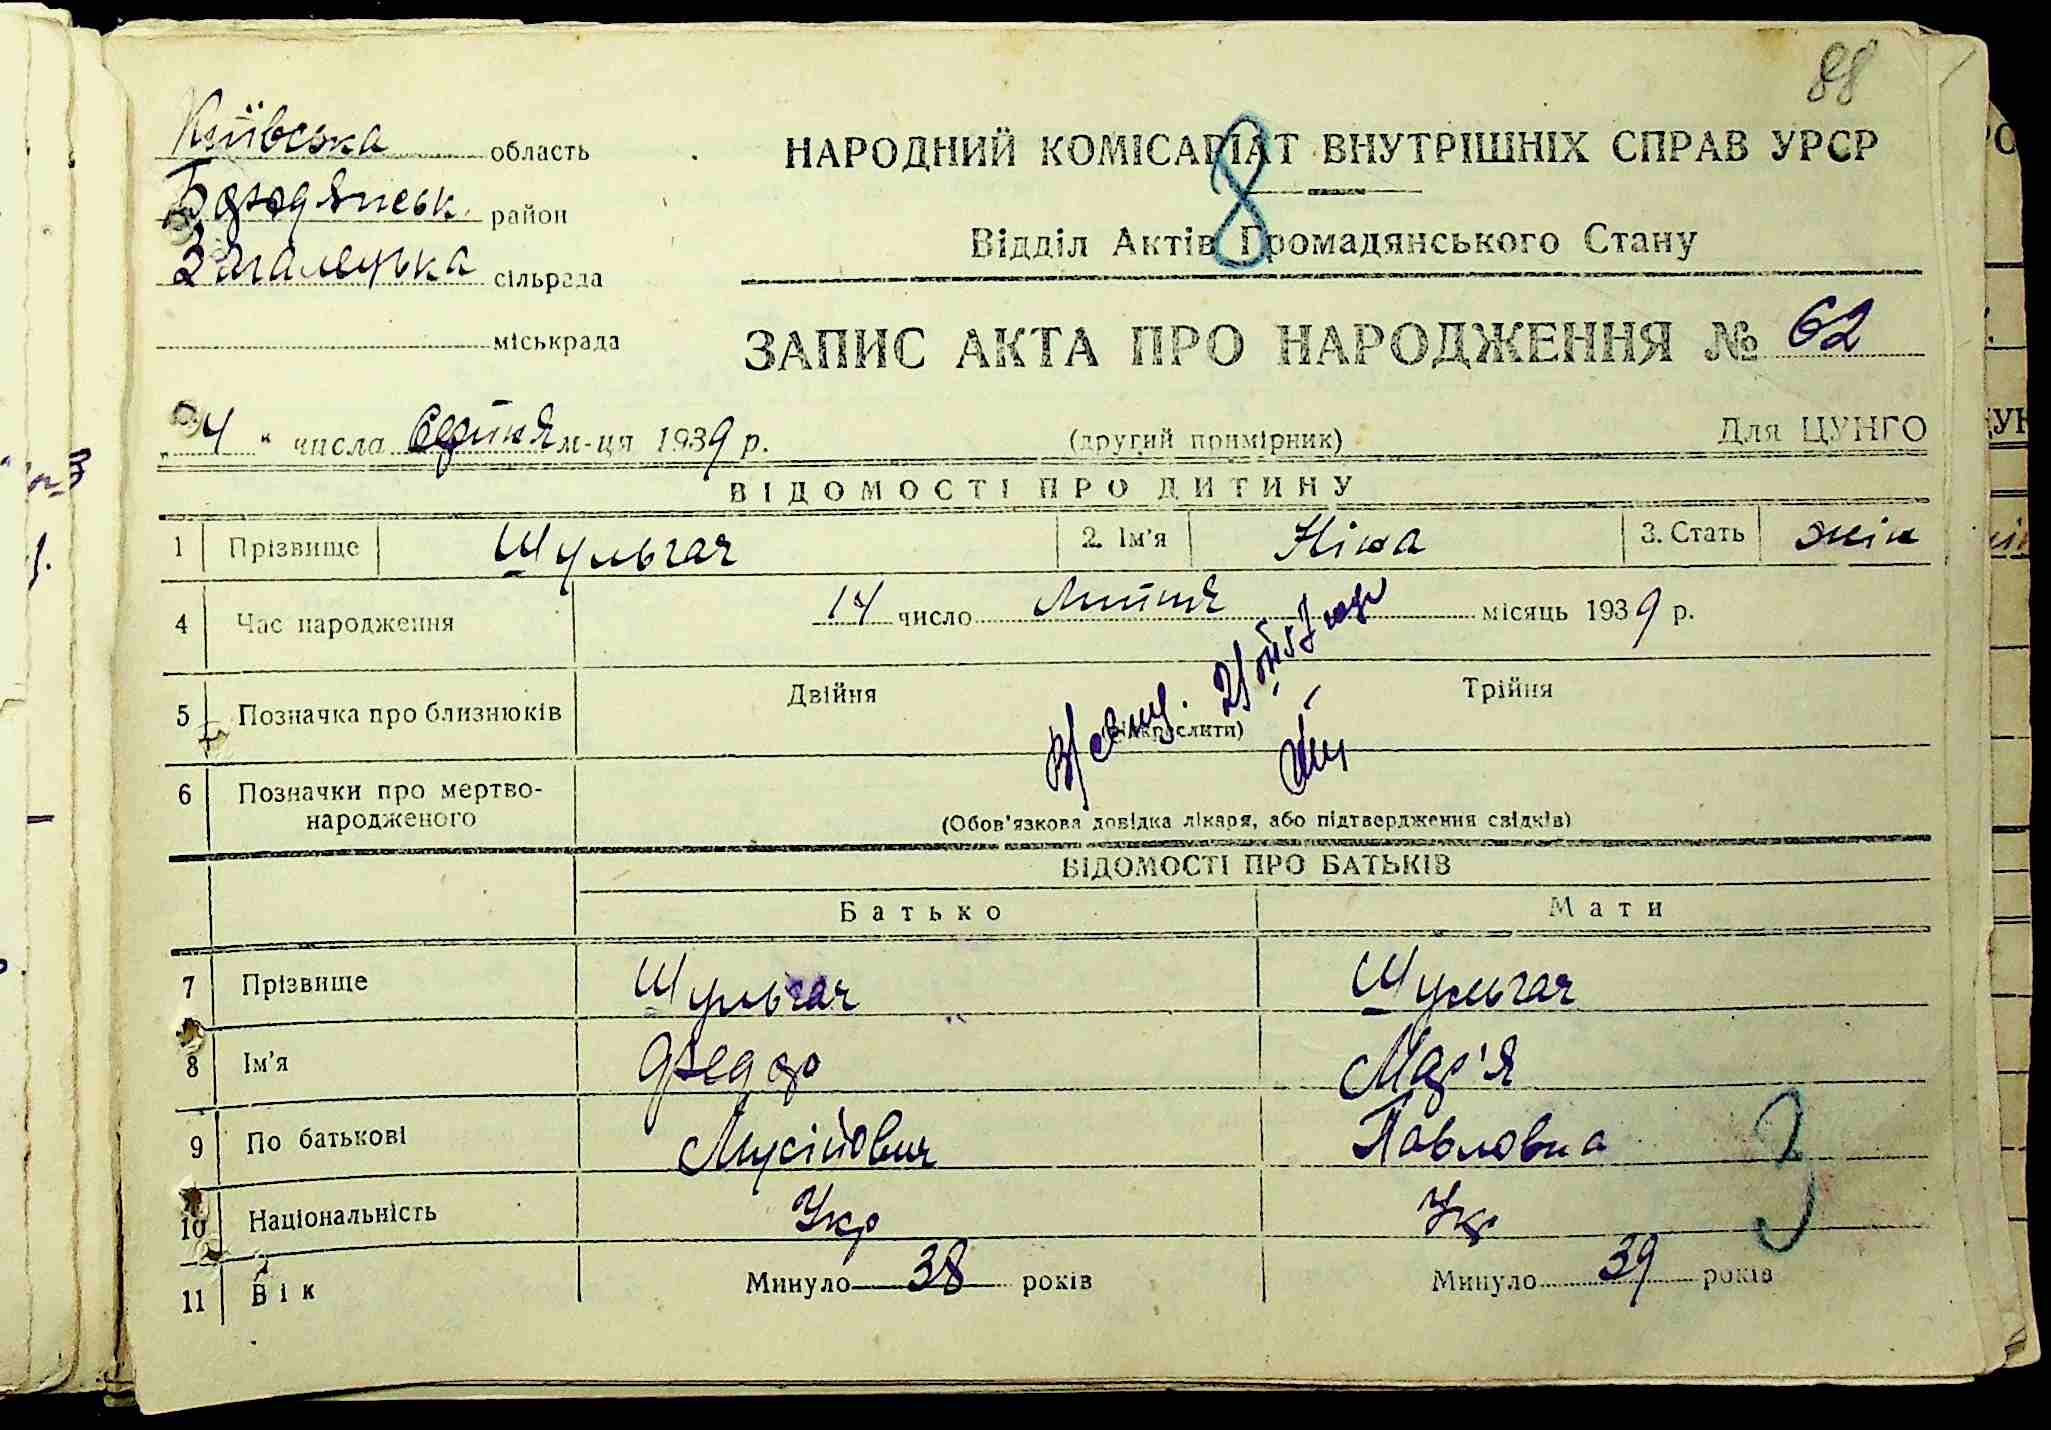 88
Київська область
Бородянськ. район
Загалецька сільрада
міськрада
НАРОДНИЙ КОМІСАРІАТ ВНУТРІШНІХ СПРАВ УРСР
8
Відділ Актів Громадянського Стану
ЗАПИС АКТА ПРО НАРОДЖЕННЯ № 62
"4" числа Серпня м-ця 1939 р.
(другий примірник)
Для ЦУНГО
ВІДОМОСТІ ПРО ДИТИНУ
1 Прізвище Шульгач 2. Ім'я Ніна 3. Стать жін
4 Час народження 14 число Липня місяць 1939 р.
5 Позначка про близнюків Двійня Трійня
(підкреслити)
6 Позначки про мертво-
народженого
(Обов'язкова довідка лікаря, або підтвердження свідків)
ВІДОМОСТІ ПРО БАТЬКІВ
Батько Мати
7 Прізвище Шульгач Шульгач
8 Ім'я Федор Мар'я
9 По батькові Мусійович Павловна
10 Національність Укр Укр
11 Вік Минуло 38 років Минуло 39 років